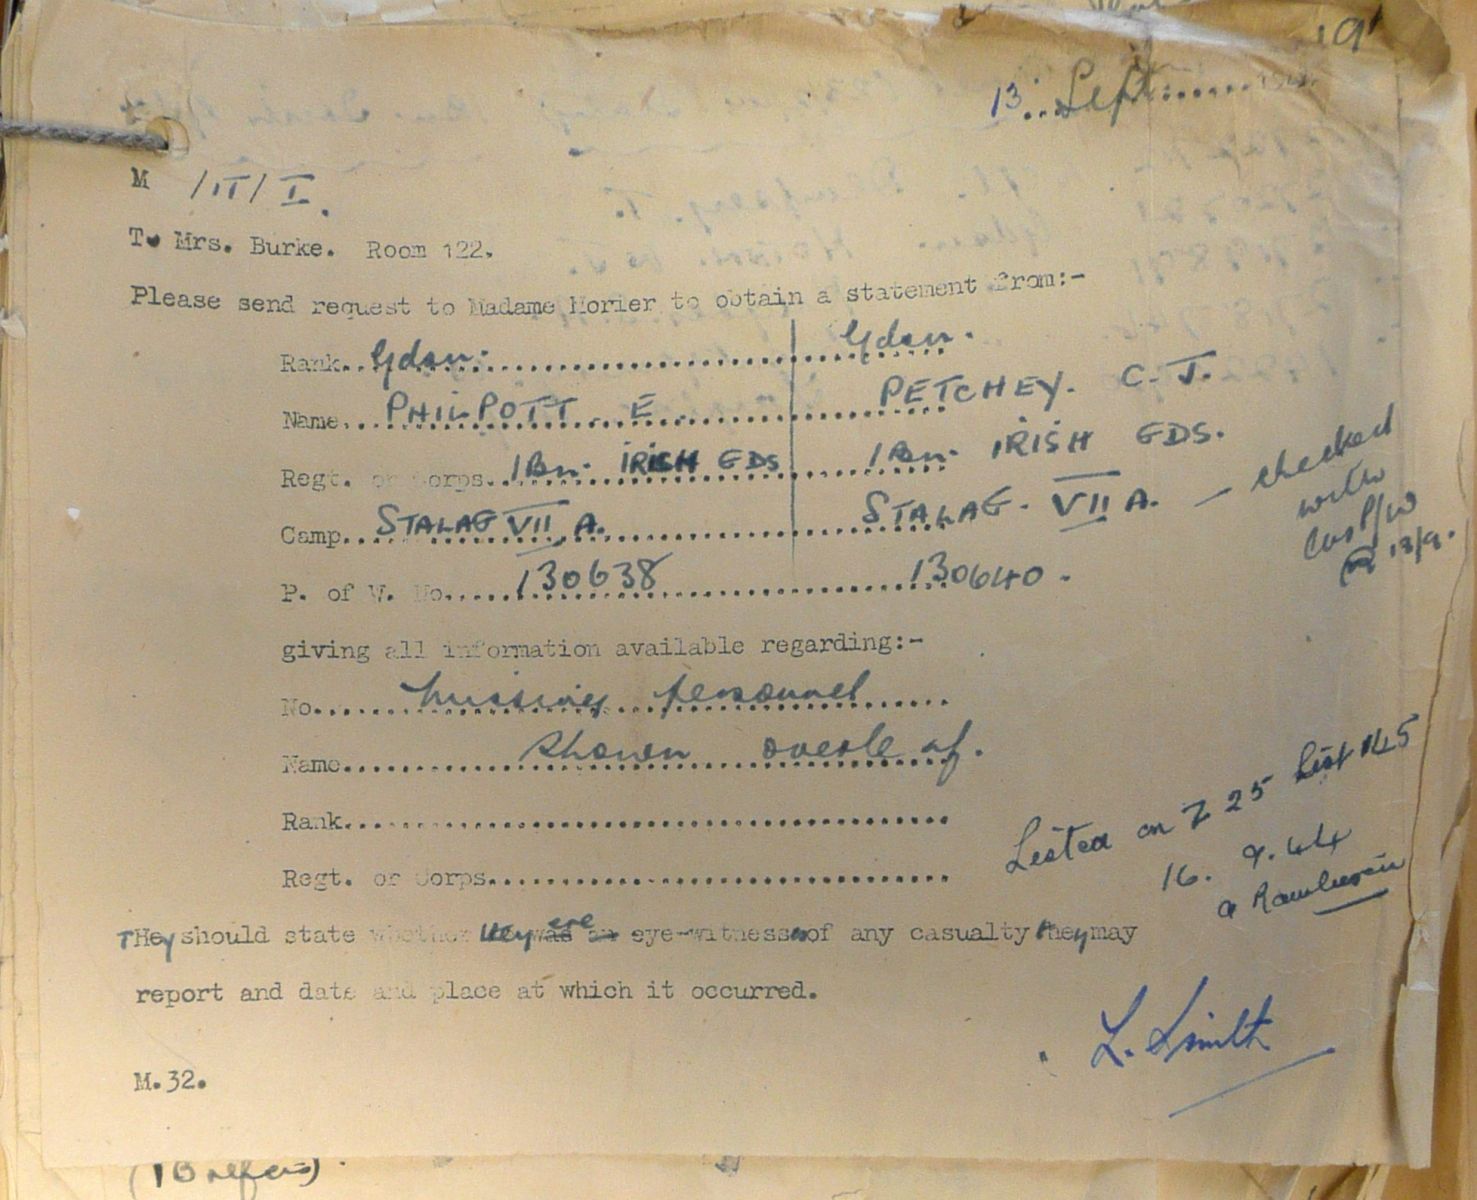 19
13 Sept
M /IT/ I.
To Mrs. Burke. Room 122.
Please send request to Madame Morier to obtain a statement from:-
Rank.. Gdsn. Gdsn.
Name.. PHILPOTT E PETCHEY. C.J.
Regt. or Corps. 1 Bn. IRISH GDS 1 Bn. IRISH GDS.
Camp.. STALAG VII A. STALAG. VII A. — checked
with
Cas P/W
13/9.
P. of W. No.. 130638 130640.
giving all information available regarding:-
No. missing personnel
Name. shown overleaf.
Rank.
Listed on Z 25 List 145
16. 9. 44
Regt. or Corps.
THey should state whether they was ere an eye-witness of any casualty they may
report and date and place at which it occurred.
L. Smith
M.32.
(1B refers).